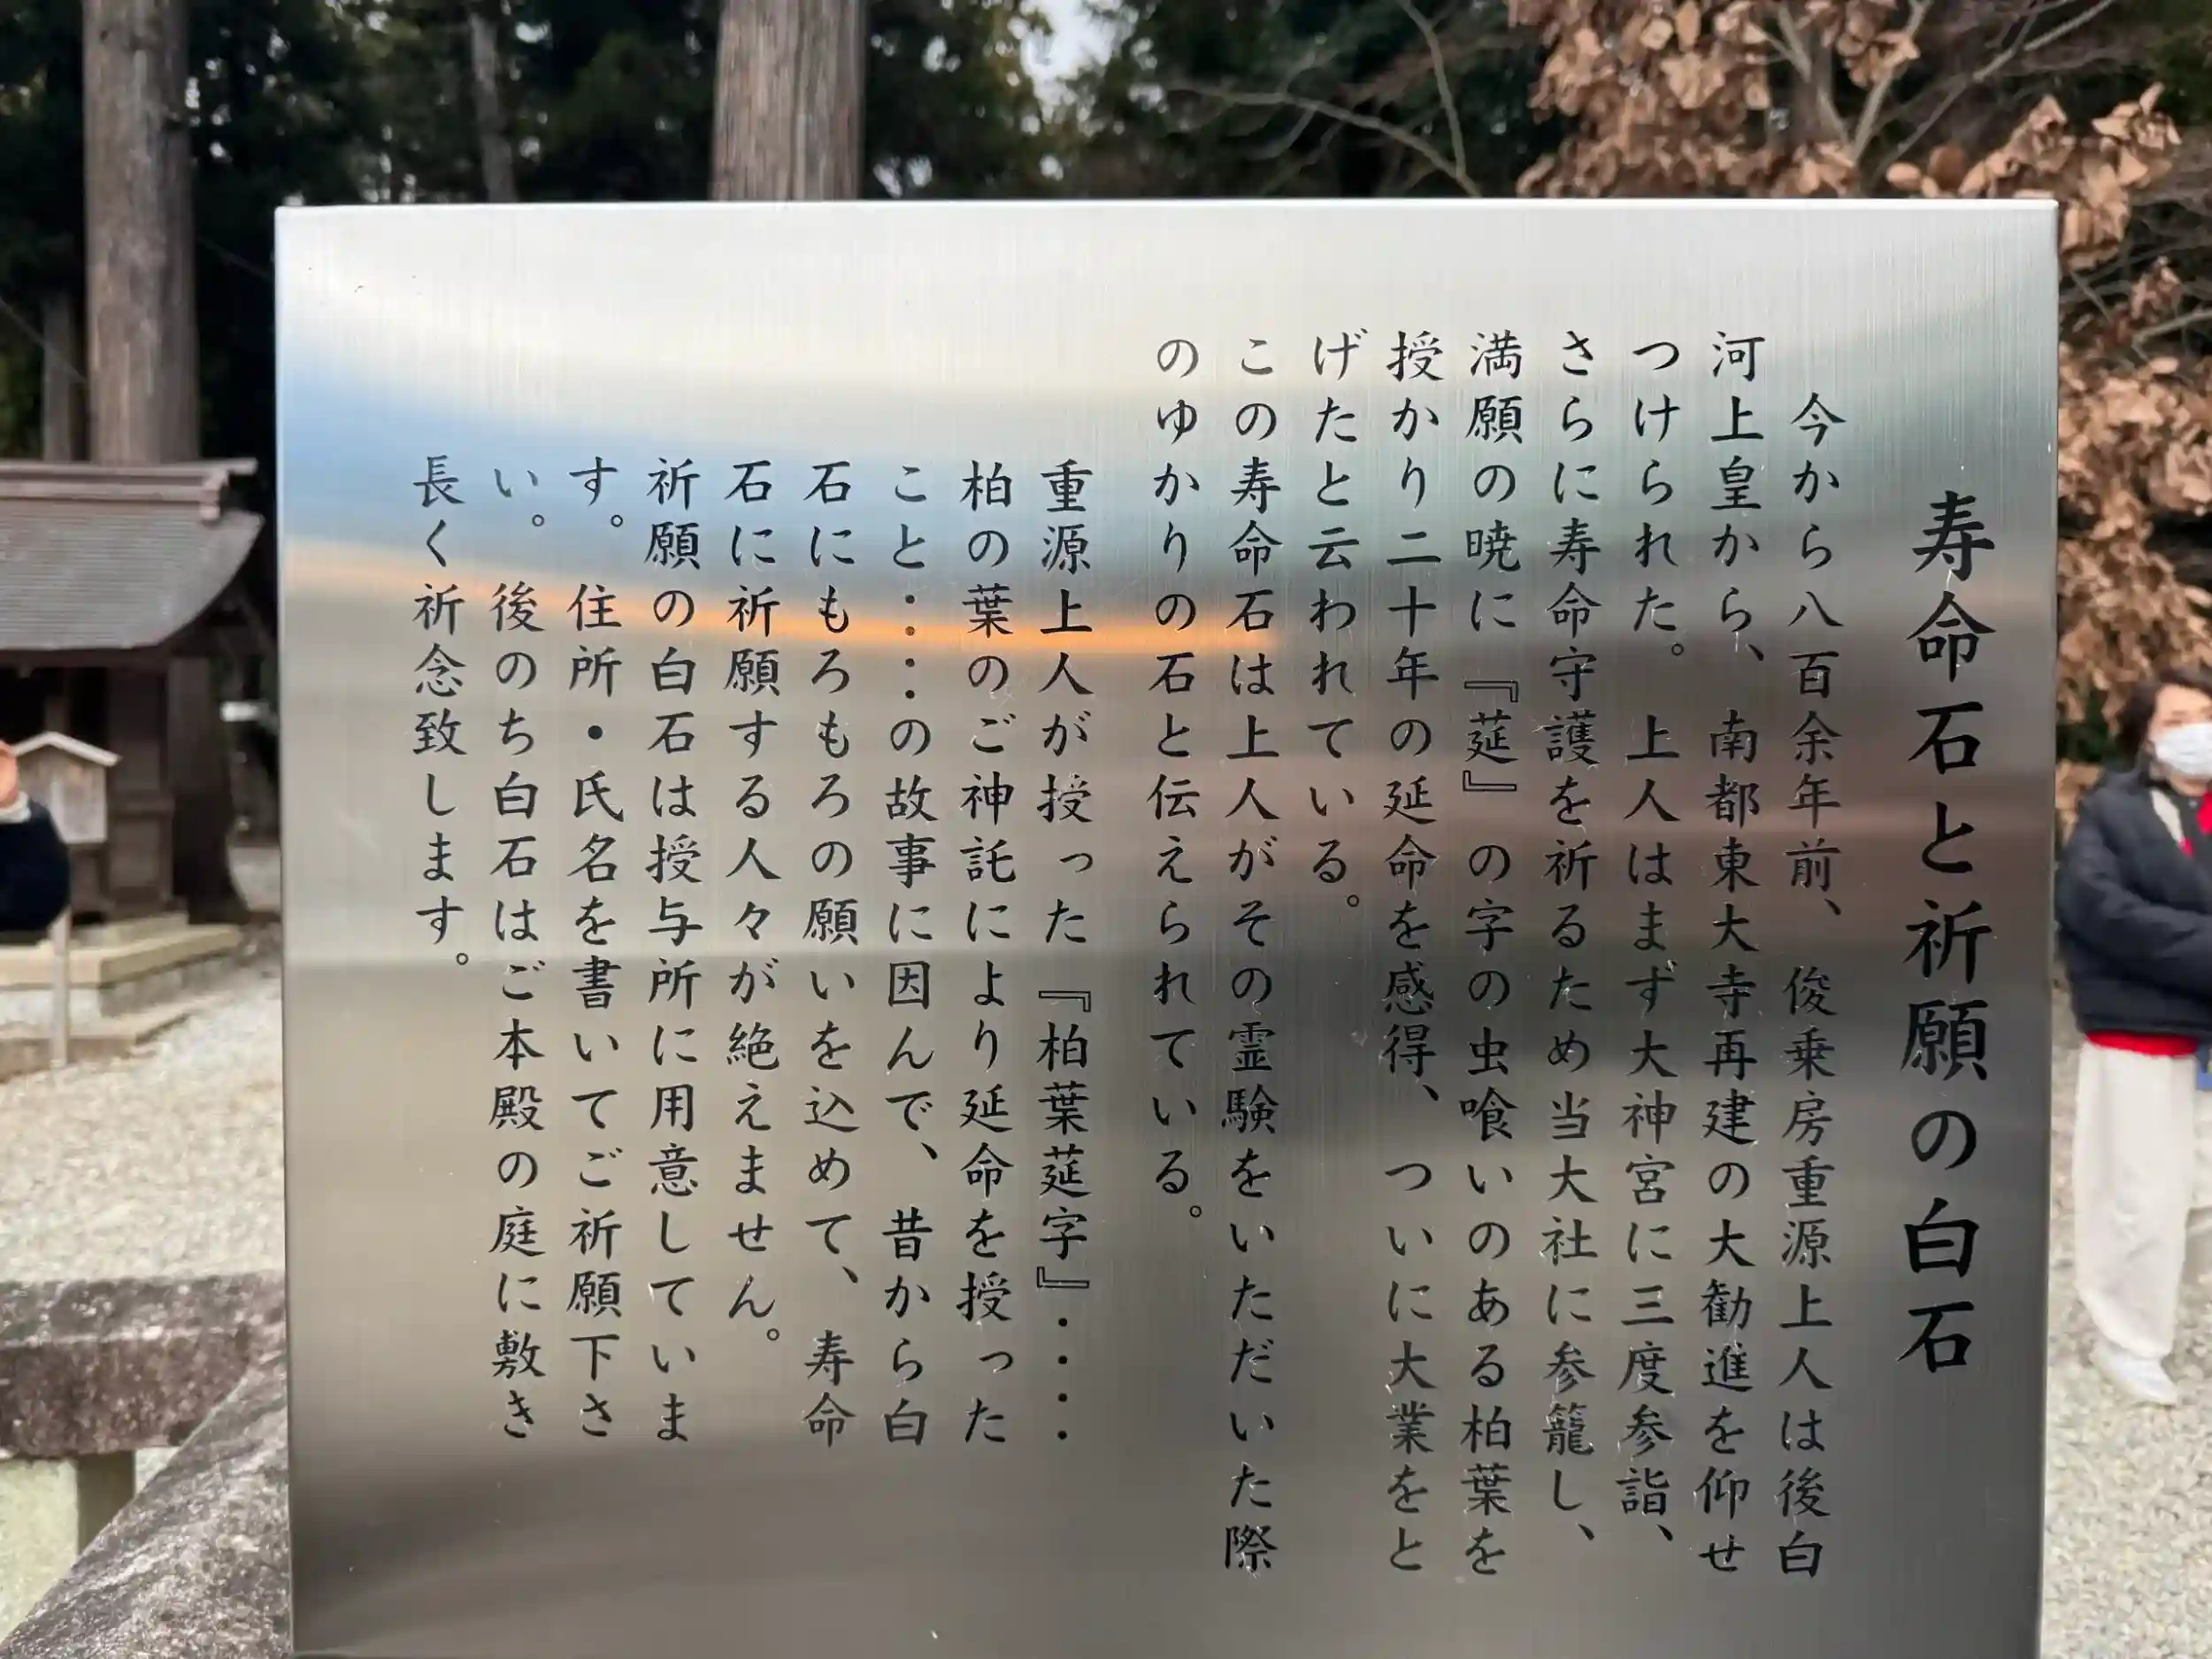 寿命石と祈願の白石
今から八百余年前、俊乗房重源上人は後白
河上皇から、南都東大寺再建の大勧進を仰せ
つけられた。上人はまず大神宮に三度参詣、
さらに寿命守護を祈るため当大社に参籠し、
満願の暁に『莚』の字の虫喰いのある柏葉を
授かり二十年の延命を感得、ついに大業をと
げたと云われている。
この寿命石は上人がその霊験をいただいた際
のゆかりの石と伝えられている。
重源上人が授った『柏葉莚字』・・・
柏の葉のご神託により延命を授った
こと・・・の故事に因んで、昔から白
石にもろもろの願いを込めて、寿命
石に祈願する人々が絶えません。
祈願の白石は授与所に用意していま
す。住所・氏名を書いてご祈願下さ
い。後のち白石はご本殿の庭に敷き
長く祈念致します。